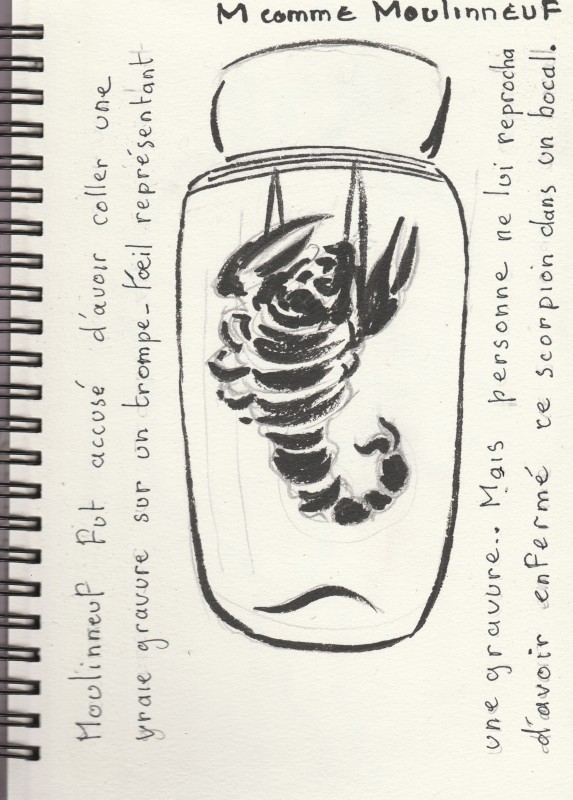 M comme Moulinneuf
Moulinneuf fut accusé d'avoir coller une
vraie gravure sur un trompe-l'œil représentant
une gravure.. Mais personne ne lui reprocha
d'avoir enfermé ce scorpion dans un bocal.